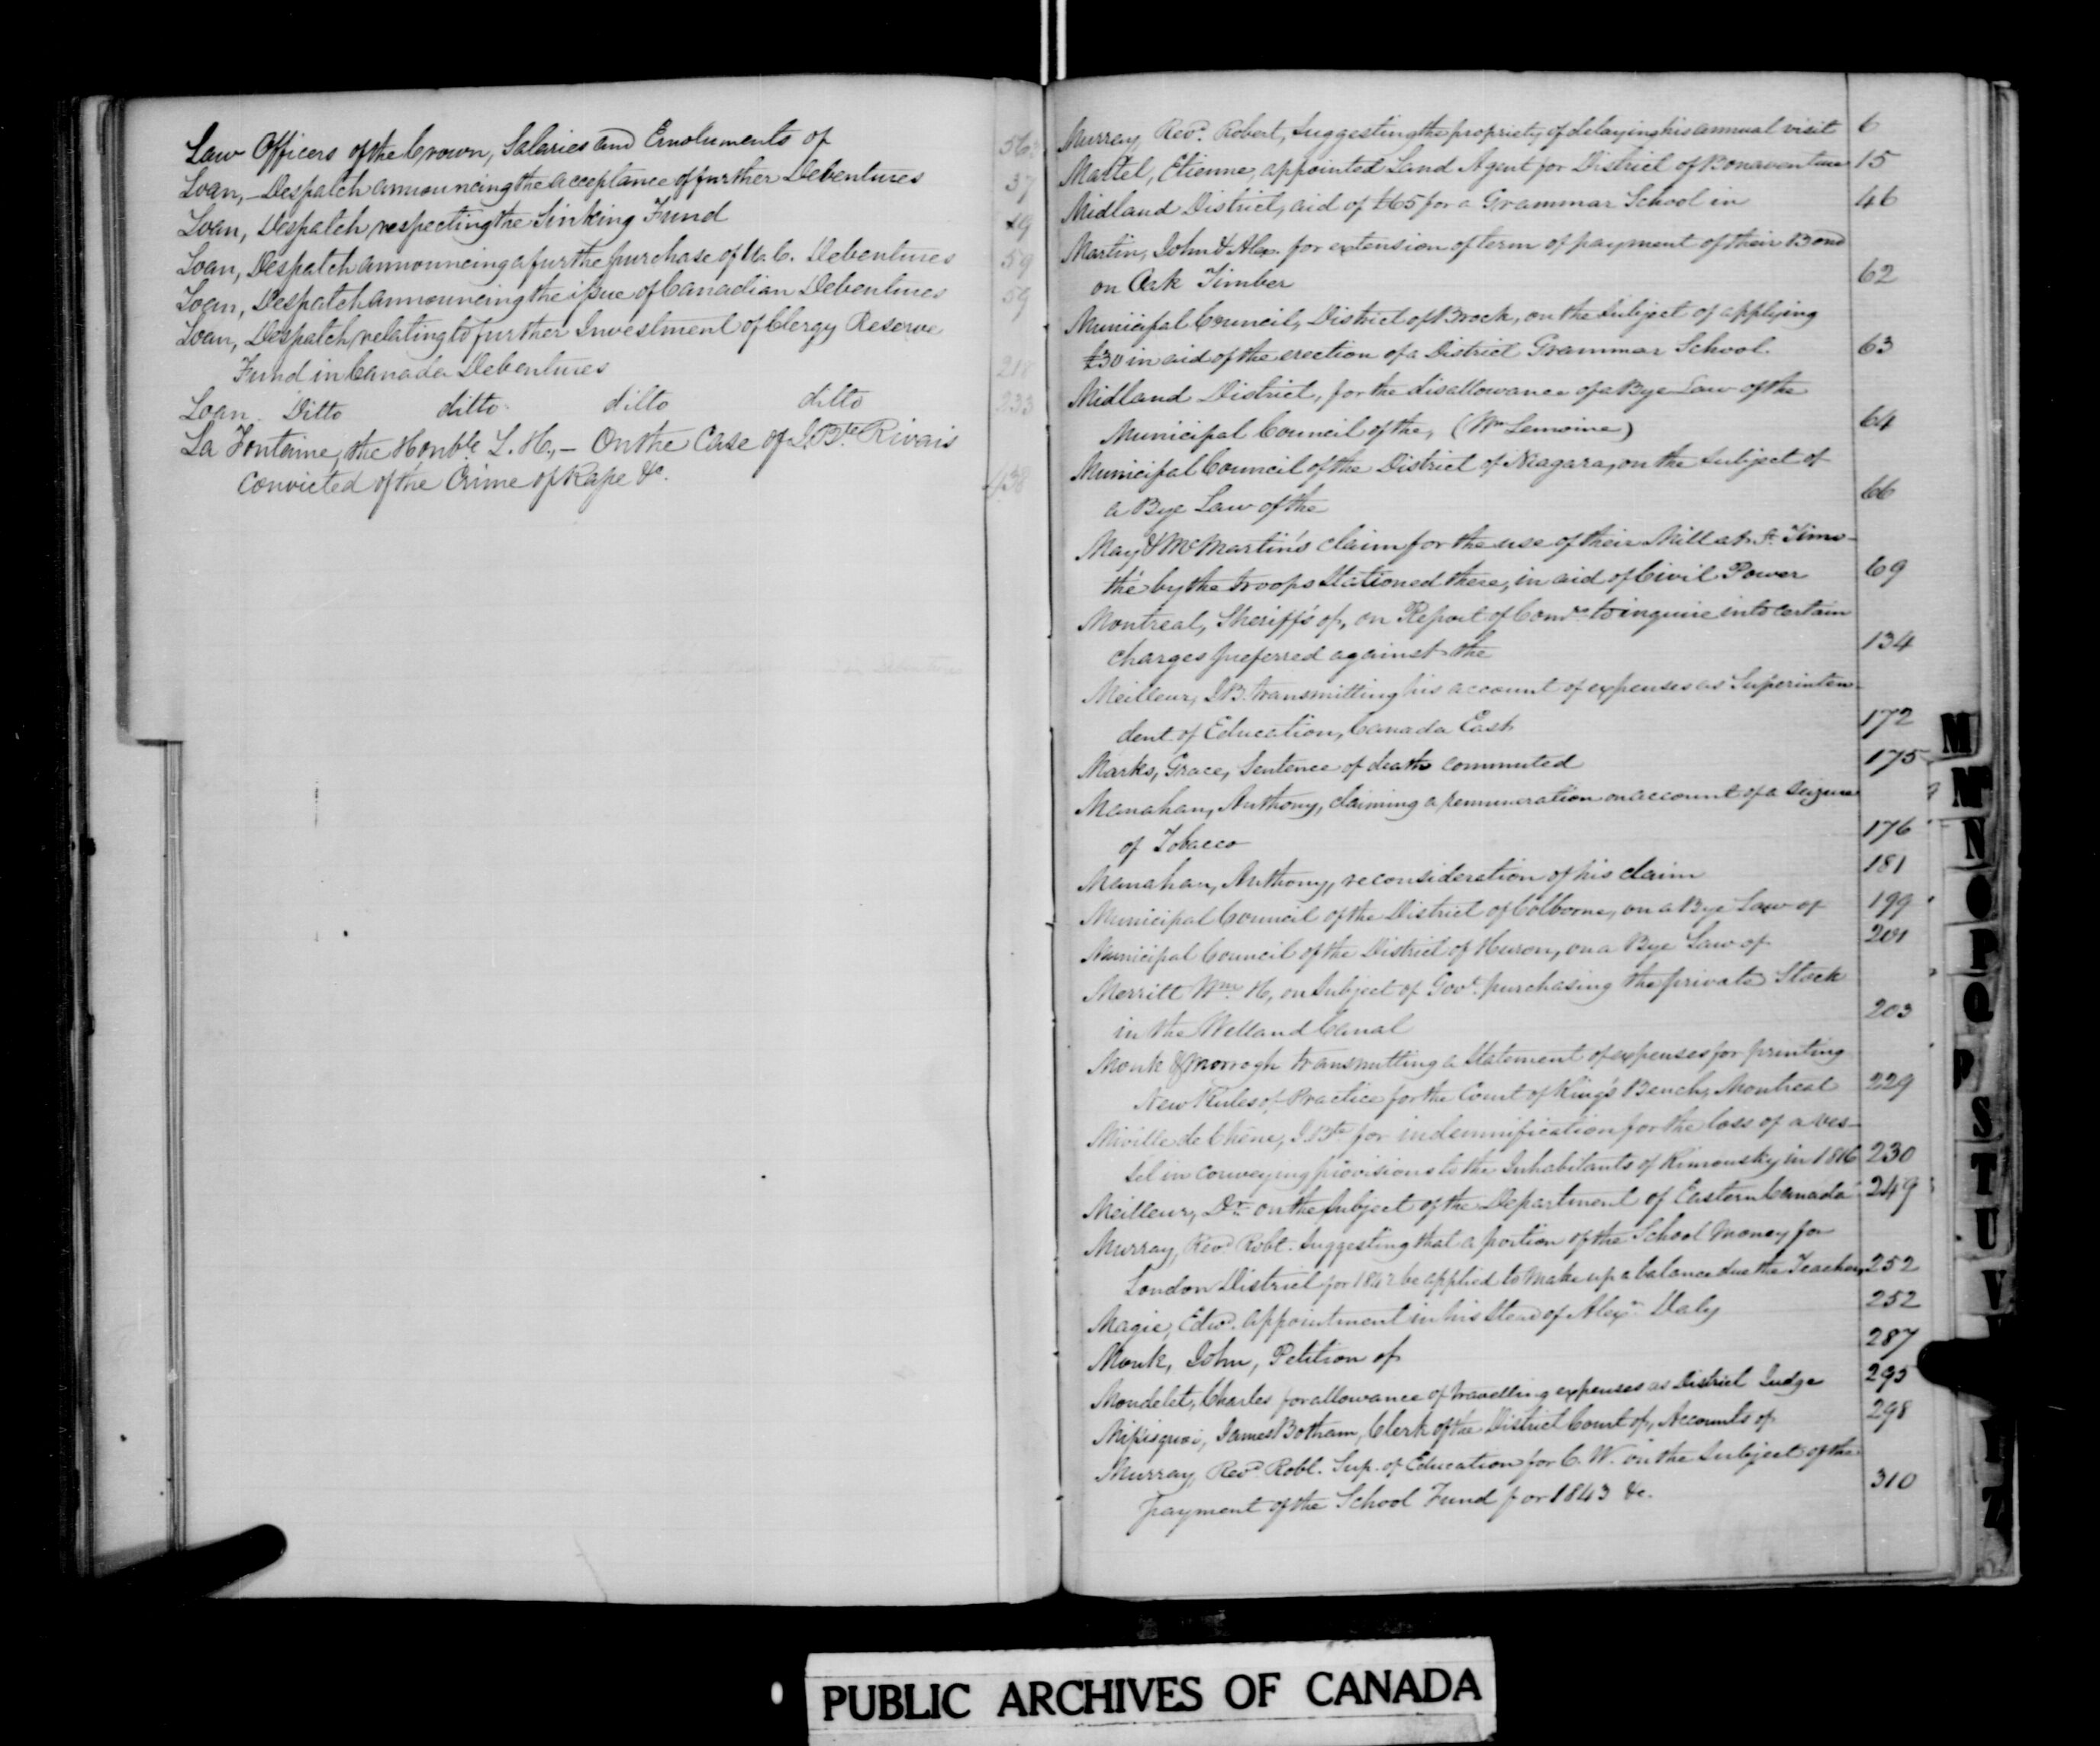 Law Officers of the Crown, Salaries and Emoluments of
Loan, – Despatch announcing the acceptance of further Debentures 37
Loan, Despatch respecting the Sinking Fund 49
Loan, Despatch announcing a further purchase of U. C. Debentures 59
Loan, Despatch announcing the issue of Canadian Debentures 59
Loan, Despatch relating to further Investment of Clergy Reserve
Fund in Canada Debentures 218
Loan Ditto ditto ditto ditto 233
La Fontaine, the Honble L. H., – On the Case of J. Bte Rivais
Convicted of the Crime of Rape &c. 438
Murray, Revd. Robert, Suggesting the propriety of delaying his annual visit 6
Martel, Etienne, appointed Land Agent for District of Bonaventure 15
Midland District, aid of £65 for a Grammar School in 46
Martin, John & Alex. for extension of term of payment of their Bond
on Oak Timber 62
Municipal Council, District of Brock, on the Subject of applying
£30 in aid of the erection of a District Grammar School. 63
Midland District, for the disallowance of a Bye Law of the
Municipal Council of the, (Wm Lemoine) 64
Municipal Council of the District of Niagara, on the Subject of
a Bye Law of the 66
May & McMartin's claim for the use of their Mill at St. Timo-
thé by the troops Stationed there, in aid of Civil Power 69
Montreal, Sheriff's of, on Report of Comrs to inquire into certain
charges preferred against the 134
Meilleur, J.B. transmitting his account of expenses as Superinten-
dent of Education, Canada East 172
Marks, Grace, Sentence of death commuted 175
Manahan, Anthony, claiming a remuneration on account of a Seizure
of Tobacco 176
Manahan, Anthony, reconsideration of his claim 181
Municipal Council of the District of Colborne, on a Bye Law of 199
Municipal Council of the District of Huron, on a Bye Law of 201
Merritt Wm. H, on Subject of Govt. purchasing the private Stock
in the Welland Canal 203
Monk & Morrogh transmitting a Statement of expenses for printing
New Rules of Practice for the Court of King's Bench, Montreal 229
Miville de Chêne, J. Bte for indemnification for the loss of a ves-
sel in conveying provisions to the Inhabitants of Rimousky in 1816 230
Meilleur, Dr. on the Subject of the Department of Eastern Canada 249
Murray, Revd Robt. Suggesting that a portion of the School Money for
London District for 1842 be applied to make up a balance due the Teachers 252
Magie, Edwd. Appointment in his stead of Alexr. Daly 252
Monk, John, Petition of 287
Mondelet, Charles for allowance of travelling expenses as District Judge 295
Missisquoi, James Botham, Clerk of the District Court of, Accounts of 298
Murray, Revd Robt. Sup. of Education for C. W. on the Subject of the
payment of the School Fund for 1843 &c. 310
M
Mc
N
O
P
Q
R
S
T
U
V
PUBLIC ARCHIVES OF CANADA